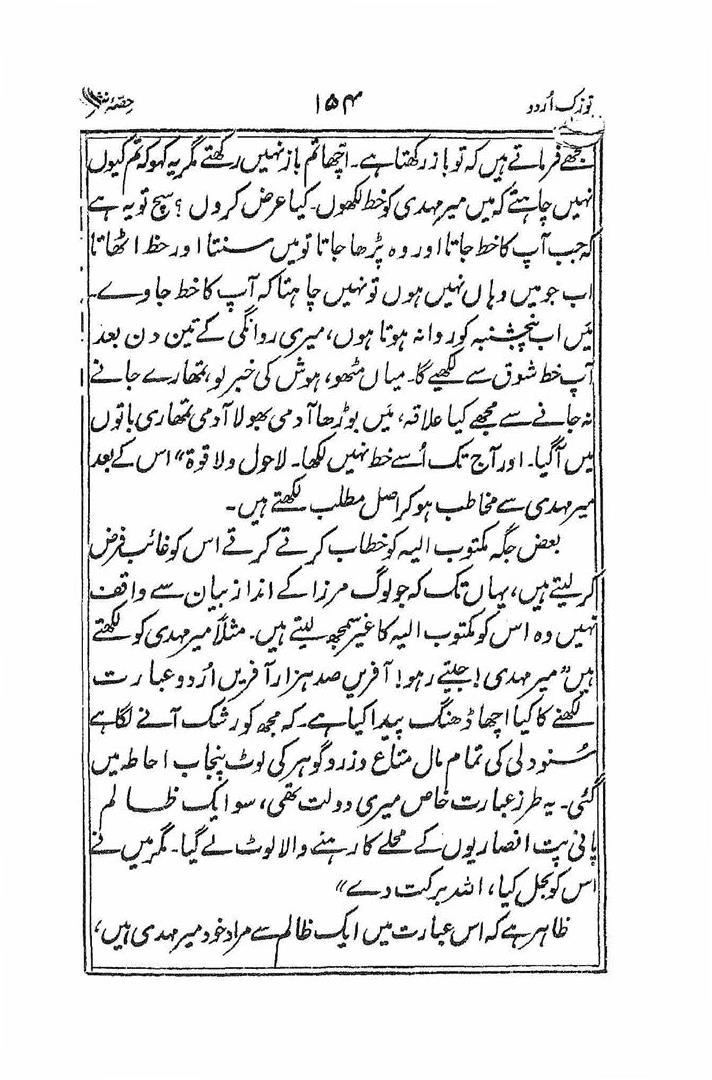 توزک اُردو ۱۵۴ حصّہ نثر
مجھے فرماتے ہیں کہ تو باز رکھتا ہے۔ اچھا تم باز نہیں رکھتے مگر یہ کہو کہ تم کیوں
نہیں چاہتے کہ میں میر مہدی کو خط لکھوں۔ کیا عرض کروں؟ سچ تو یہ ہے
کہ جب آپ کا خط جاتا اور وہ پڑھا جاتا تو میں سنتا اور حظ اٹھاتا
اب جو میں وہاں نہیں ہوں تو نہیں چاہتا کہ آپ کا خط جاوے۔
میں اب پنجشنبہ کو روانہ ہوتا ہوں، میری روانگی کے تین دن بعد
آپ خط شوق سے لکھیے گا۔ میاں مٹھو، ہوش کی خبر لو، تمھارے جانے
نہ جانے سے مجھے کیا علاقہ، میں بوڑھا آدمی بھولا آدمی تمھاری باتوں
میں آگیا۔ اور آج تک اُسے خط نہیں لکھا۔ لاحول ولا قوۃ" اس کے بعد
میر مہدی سے مخاطب ہو کر اصل مطلب لکھتے ہیں۔
بعض جگہ مکتوب الیہ کو خطاب کرتے کرتے اس کو غائب فرض
کر لیتے ہیں، یہاں تک کہ جو لوگ مرزا کے انداز بیان سے واقف
نہیں وہ اس کو مکتوب الیہ کا غیر سمجھ لیتے ہیں۔ مثلاً میر مہدی کو لکھتے
ہیں "میر مہدی! جیتے رہو! آفریں صد ہزار آفریں اُردو عبارت
لکھنے کا کیا اچھا ڈھنگ پیدا کیا ہے۔ کہ مجھ کو رشک آنے لگا ہے
سُنو دلی کی تمام مال متاع و زر و گوہر کی لوٹ پنجاب احاطہ میں
گئی۔ یہ طرز عبارت خاص میری دولت تھی، سو ایک ظالم
پانی پت انصاریوں کے محلے کا رہنے والا لوٹ لے گیا۔ مگر میں نے
اس کو بحل کیا، اللہ برکت دے"
ظاہر ہے کہ اس عبارت میں ایک ظالم سے مراد خود میر مہدی ہیں،